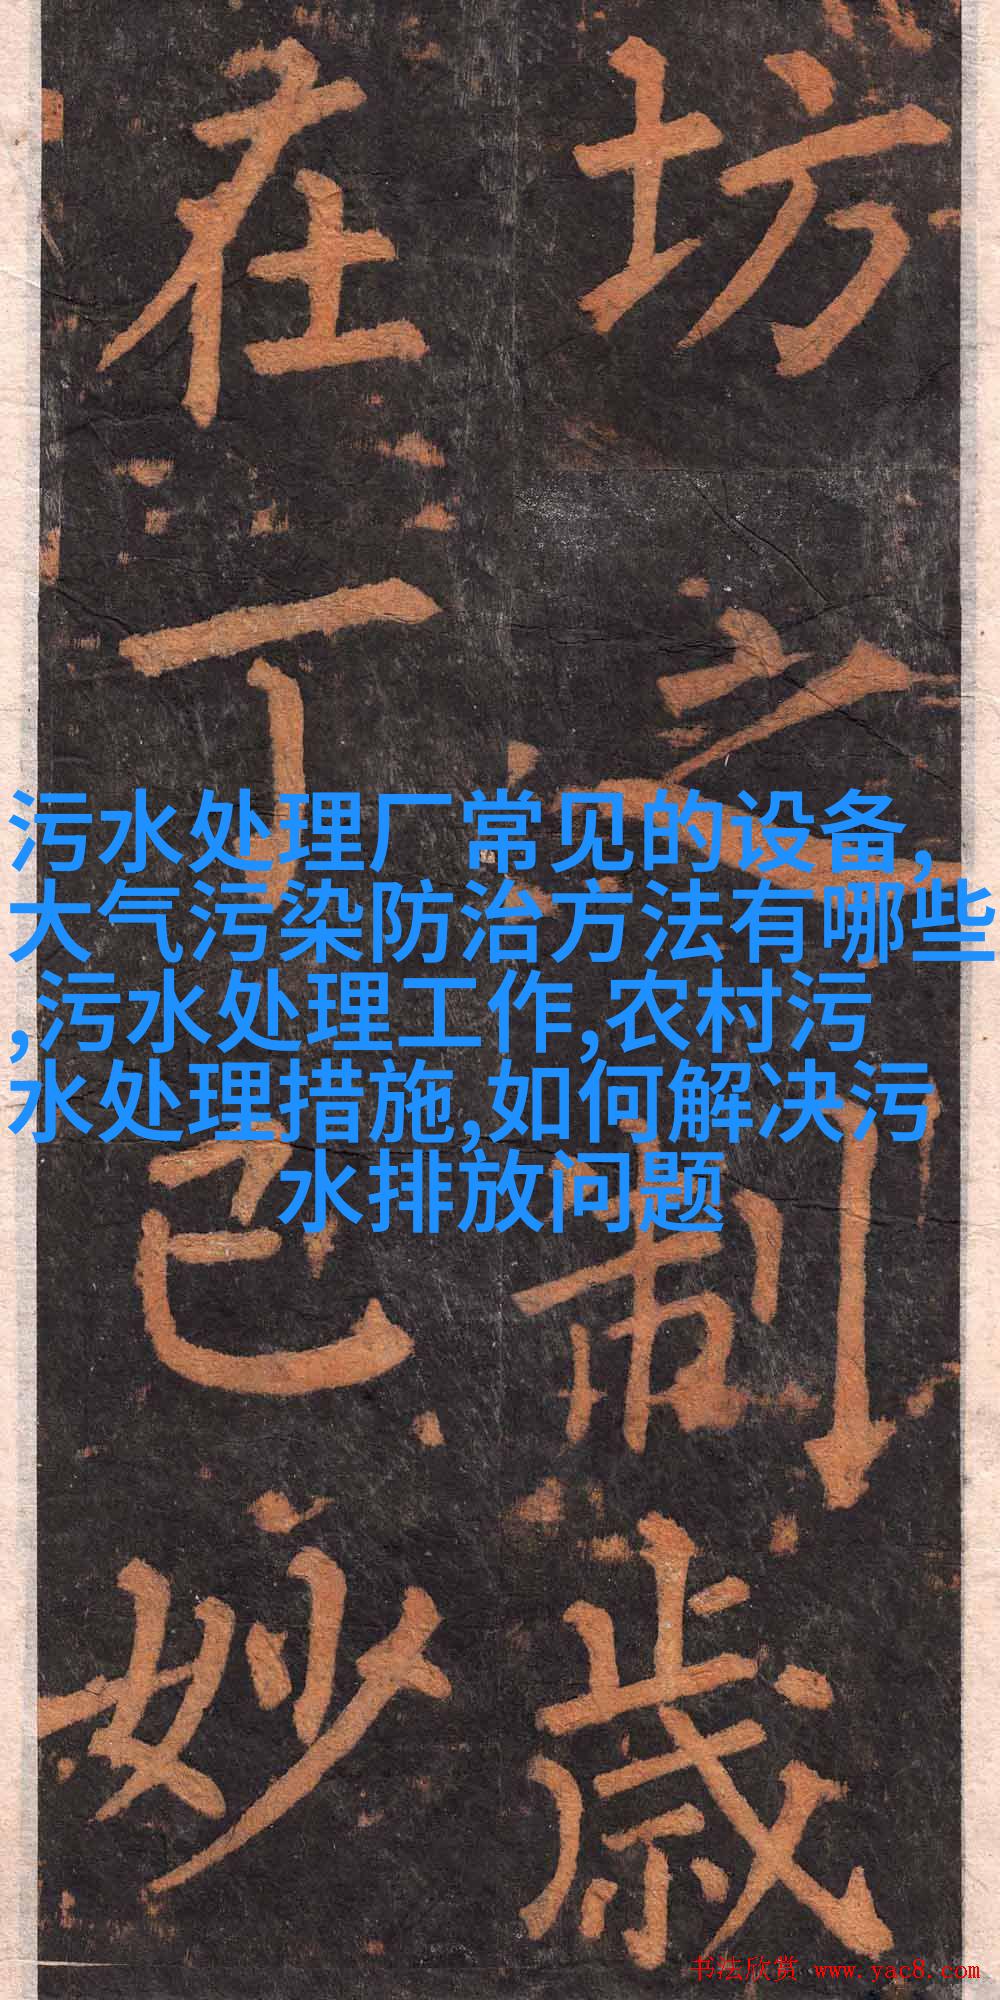 坊之制歲
在丁巳妙
污水处理厂常见的设备,
大气污染防治方法有哪些
,污水处理工作,农村污
水处理措施,如何解决污
水排放问题
书法欣赏 www.yac8.com